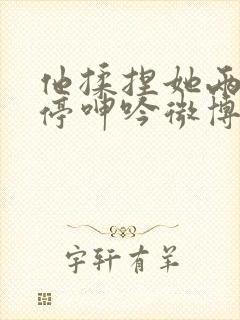 他揉捏她两
停呻吟微博
宇轩有羊